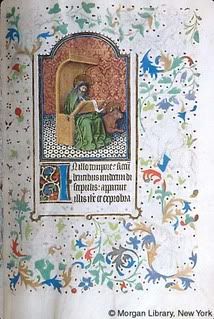 In illo tempore: Recū
bentibus undecim di
scipulis: apparuit
illis et exproba
© Morgan Library, New York